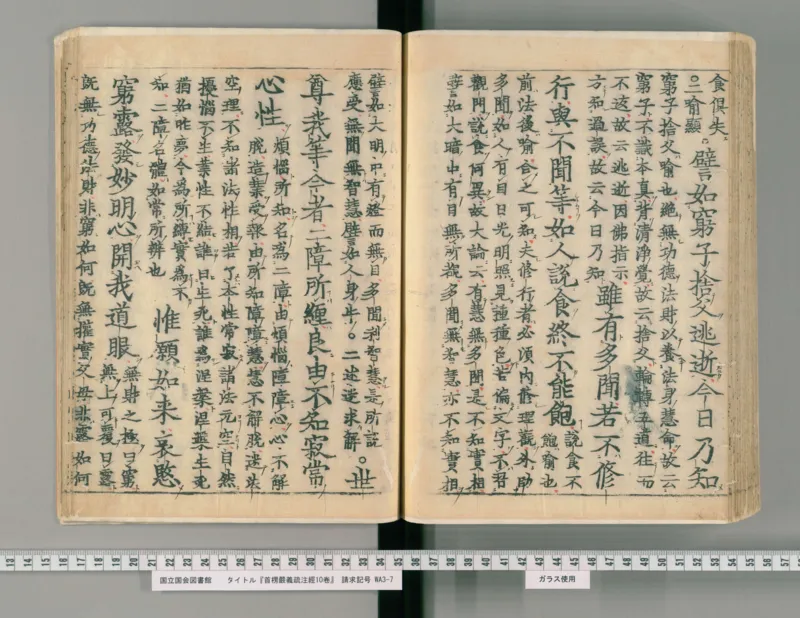 食俱失
。二喻顯。譬如窮子捨父逃逝今日乃知
窮子捨父喻也絕無功德法財以養法身慧命故云
窮子不識本真背清淨覺故云捨父輪轉五道往而
不返故云逃逝因佛指示
方知過誤故云今日乃知
雖有多聞若不修
行與不聞等如人說食終不能飽
說食不
飽喻也
前法後喻合之可知夫修行者必須內修理觀外助
多聞如人有目日光明照見種種色若偏文字不
觀門說食何異故大論云有慧無多聞是不知實相
譬如大暗中有目無所見多聞無智慧亦不知實相
譬如大明中有燈而無目多聞利智慧是所說
應受無聞無智慧譬如人身牛。二述迷求解。世
尊我等今者二障所纏良由不知寂常
心性
煩惱所知名為二障由煩惱障障心心不解
脫造業受報由所知障障慧慧不解脫迷法
空理不知諸法性相若了本性常寂諸法元空自然
擾惱不生業性不羈誰曰生死誰為涅槃涅槃生死
猶如昨夢今為所縛實為不
知二障名體如常所辨也
惟願如來哀愍
窮露發妙明心開我道眼
無財之極曰窮
無上可覆曰露
既無功德法財非窮如何既無權實父母非露如何
国立国会図書館 タイトル『首楞嚴義疏注經10巻』 請求記号 WA3-7
ガラス使用